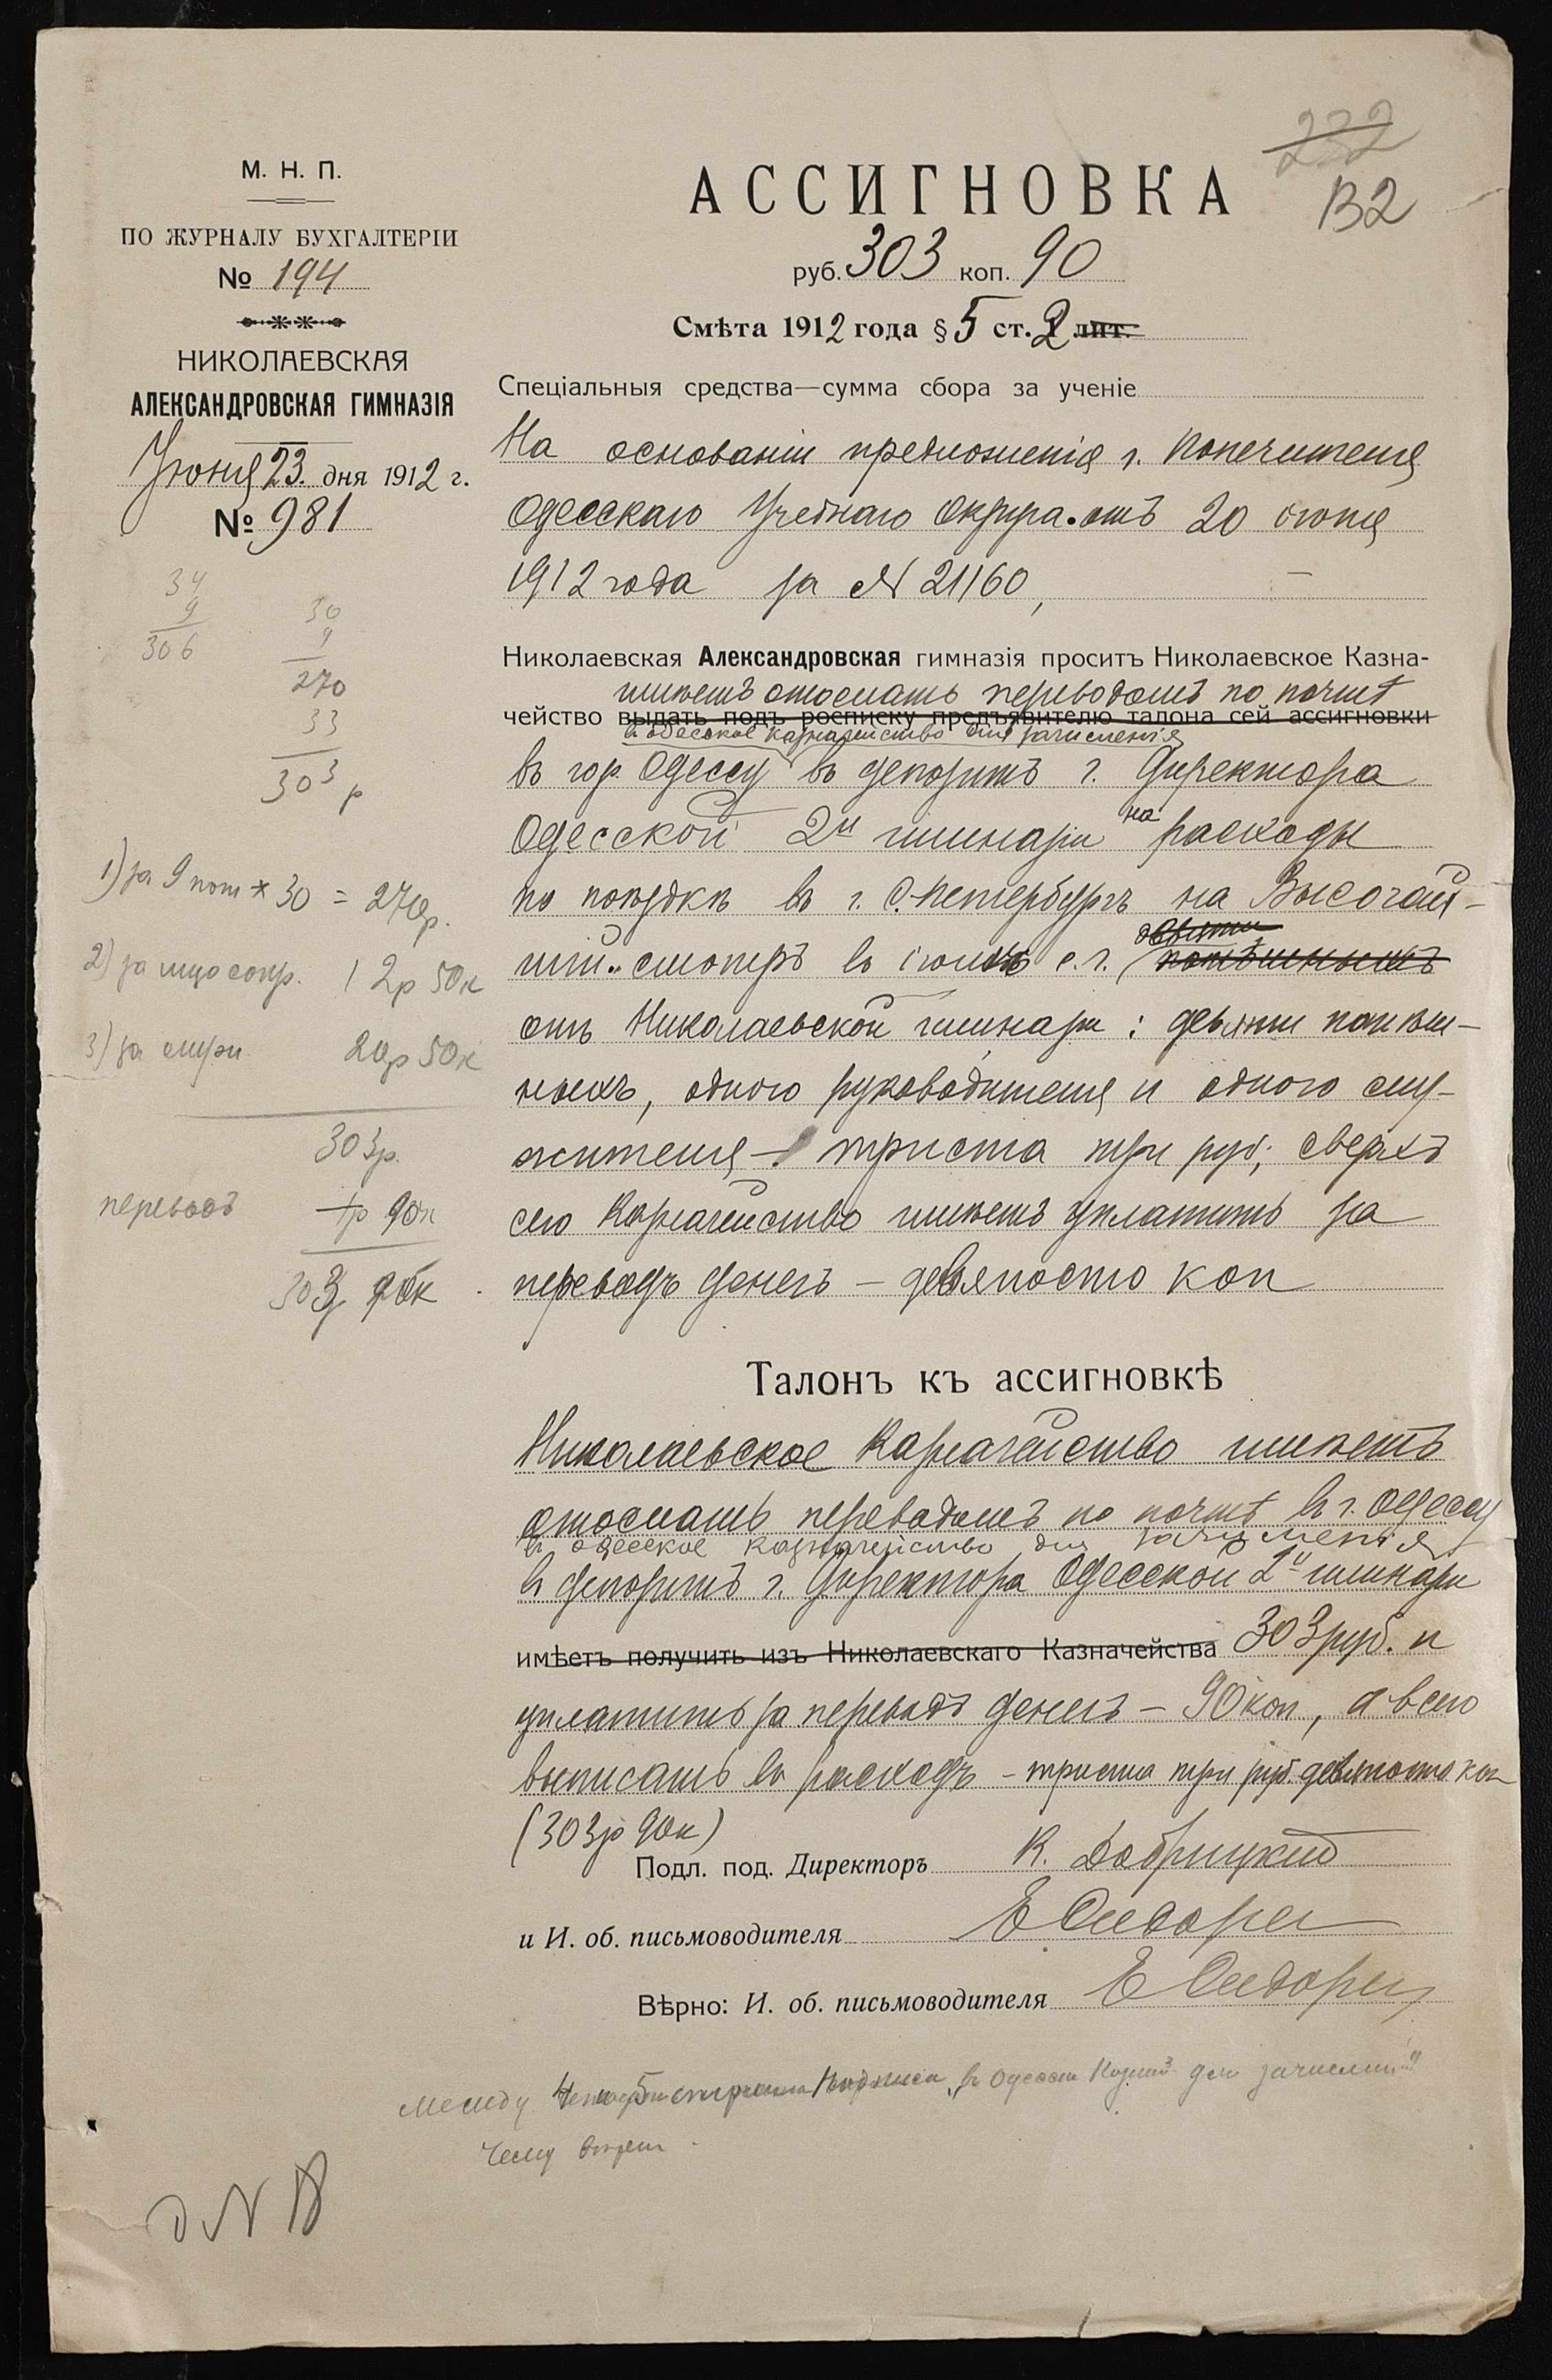 232
132
М. Н. П.
ПО ЖУРНАЛУ БУХГАЛТЕРІИ
№ 194
НИКОЛАЕВСКАЯ
АЛЕКСАНДРОВСКАЯ ГИМНАЗІЯ
Іюня 23 дня 1912 г.
№ 981
34
9
306
30
9
270
33
303 р
1) за 9 пот × 30 = 270р.
2) за лицо сопр. 12р 50к
3) за служ. 20р 50к
303р.
переводъ 90к
303р 90к
АССИГНОВКА
руб. 303 коп. 90
Смѣта 1912 года § 5 ст. 2 лит.
Спеціальныя средства—сумма сбора за ученіе
На основаніи предложенія г. Попечителя
Одесскаго Учебнаго Округа отъ 20 іюня
1912 года за № 21160,
Николаевская Александровская гимназія проситъ Николаевское Казна-
имѣетъ отослать переводомъ по почтѣ
чейство выдать подъ росписку предъявителю талона сей ассигновки
въ Одесское Казначейство для зачисленія
въ гор. Одессу въ депозитъ г. Директора
Одесской 2й гимназіи на расходы
по поѣздкѣ въ г. С.-Петербургъ на Высочай-
шій смотръ въ іюлѣ с. г.
отъ Николаевской гимназіи: девяти потѣш-
ныхъ, одного руководителя и одного слу-
жителя – триста три руб; сверхъ
сего Казначейство имѣетъ уплатить за
переводъ денегъ – девяносто коп
Талонъ къ ассигновкѣ
Николаевское Казначейство имѣетъ
отослать переводомъ по почтѣ въ г. Одессу
въ Одесское Казначейство для зачисленія
въ депозитъ г. Директора Одесской 2й гимназіи
имѣетъ получить изъ Николаевскаго Казначейства 303 руб. и
уплатить за переводъ денегъ – 90 коп, а всего
выписать въ расходъ – триста три руб. девяносто коп
(303р 90к)
Подл. под. Директоръ К. Добрицкій
и И. об. письмоводителя Е Сидора
Вѣрно: И. об. письмоводителя Е Сидора
Между 4 и 5 строками надписи „въ Одесское Казнач. для зачисленія"
чему вѣрить.